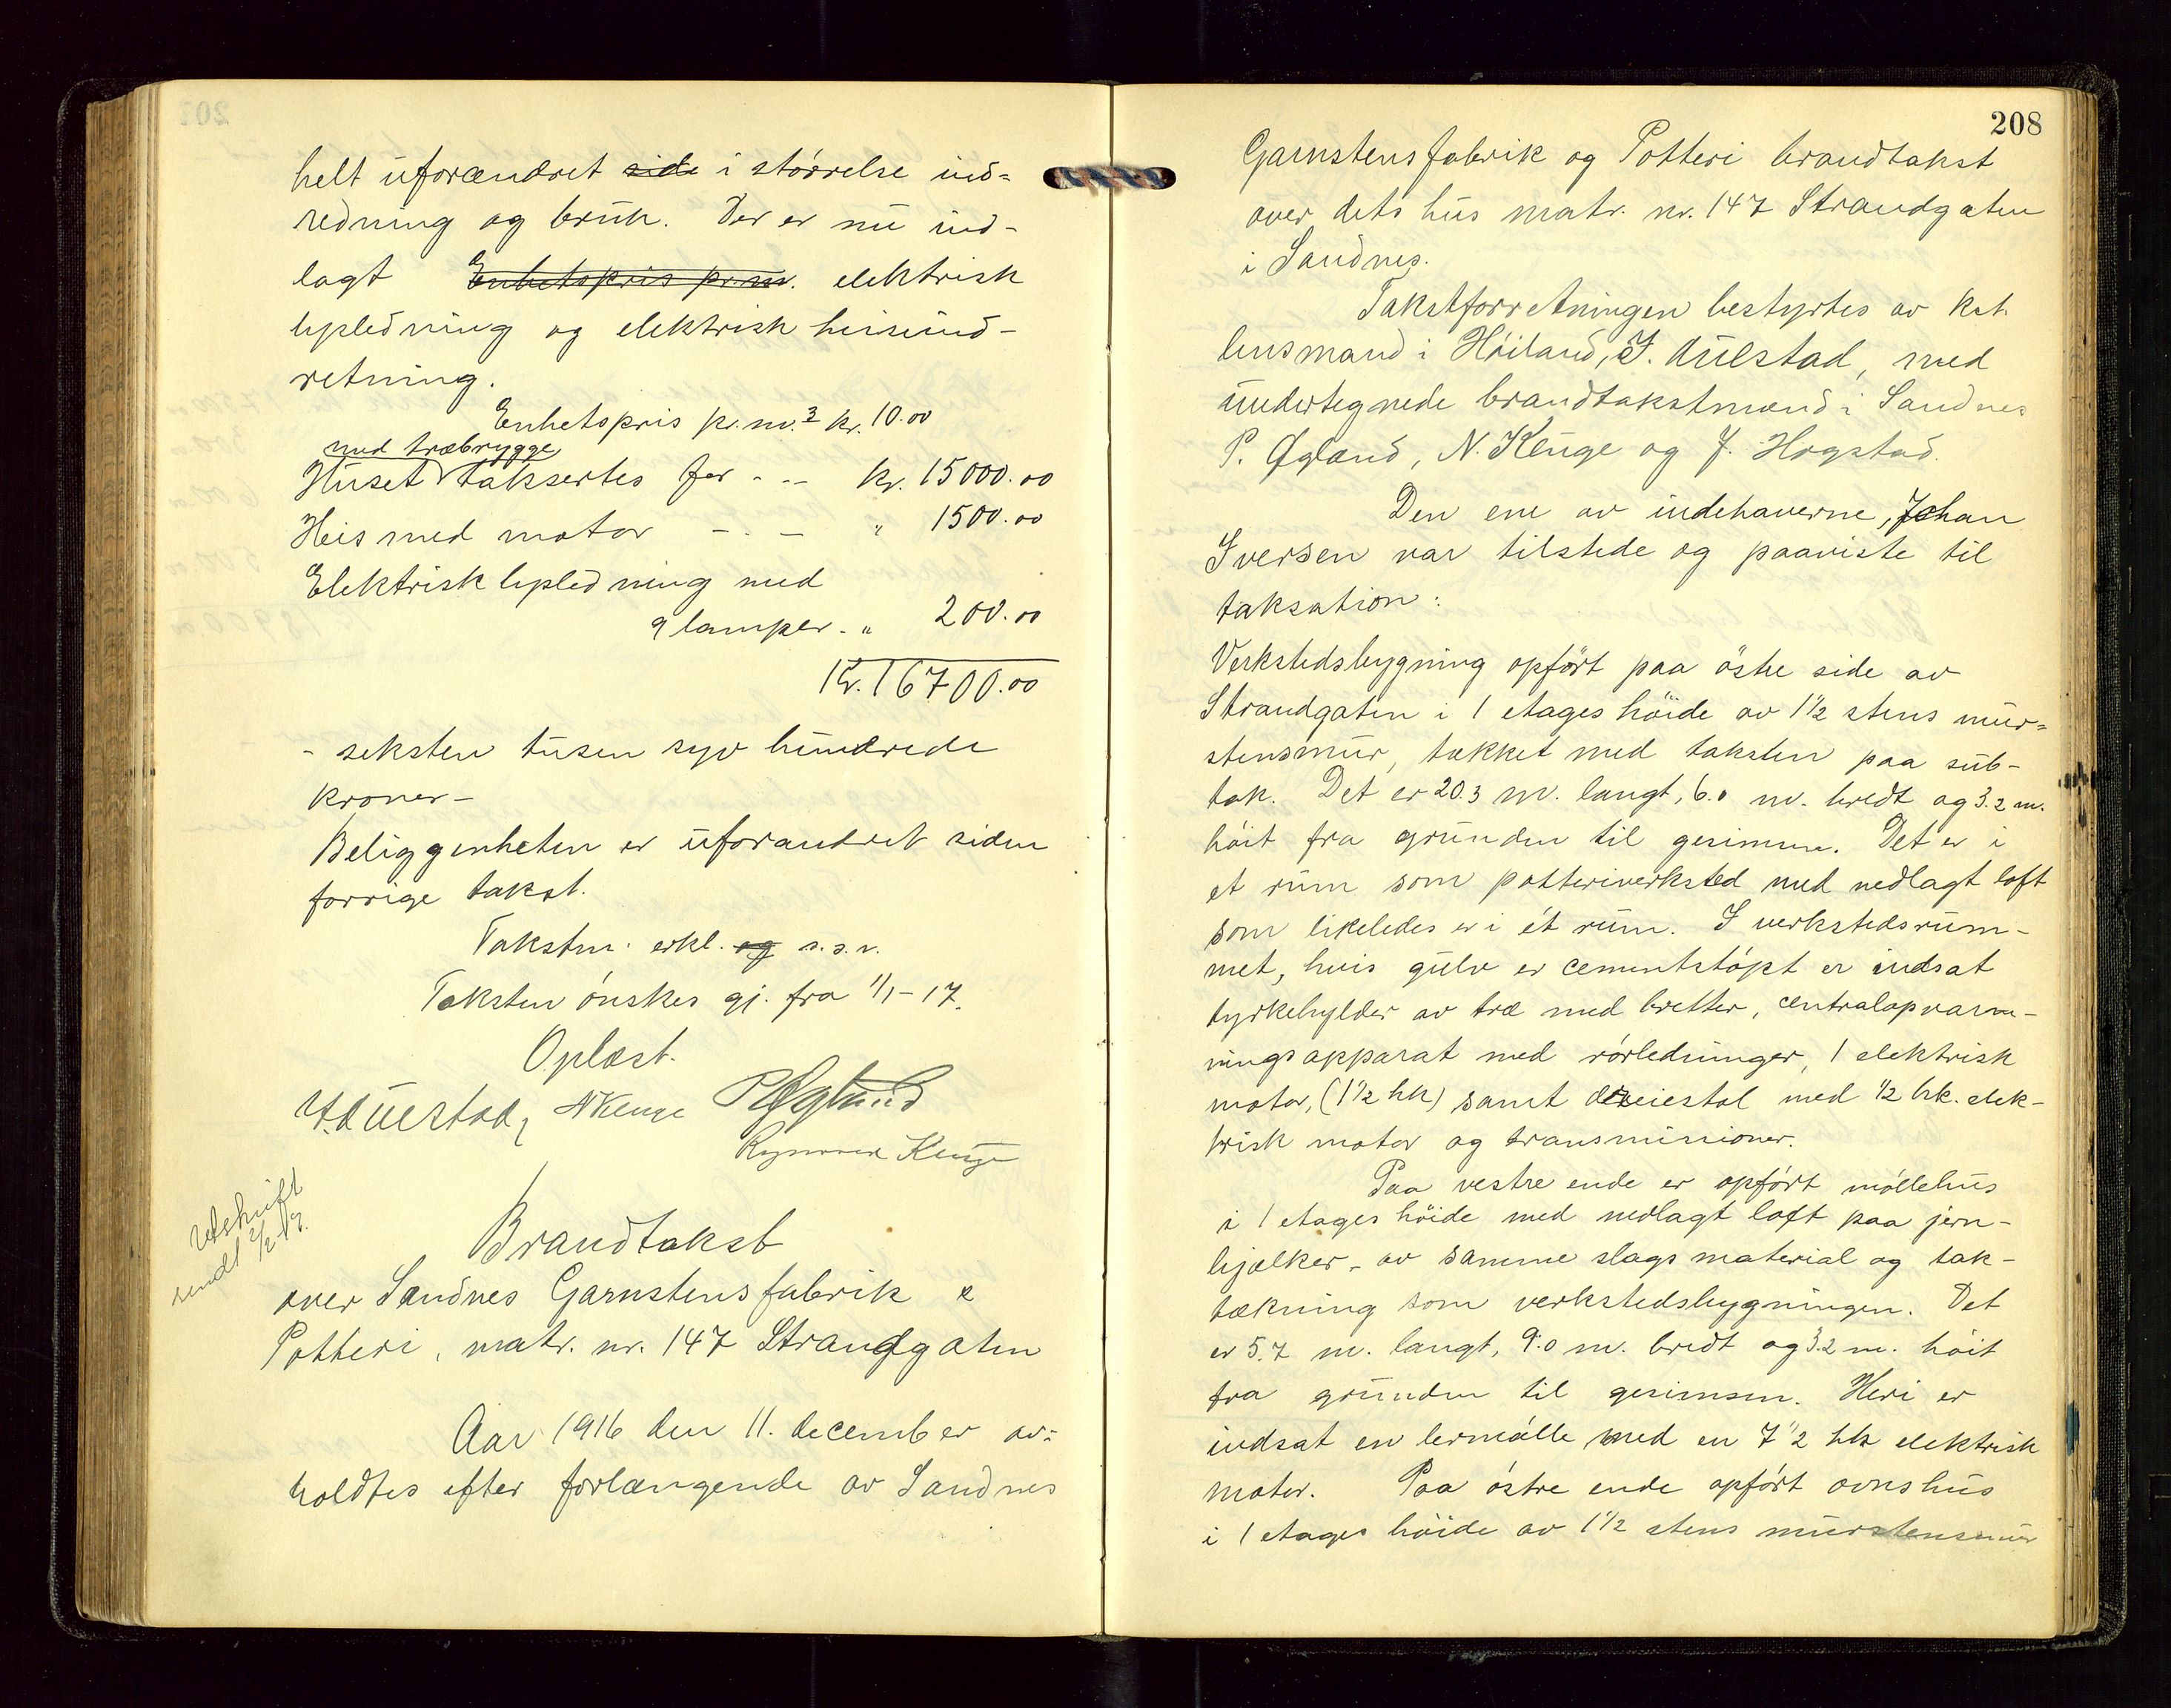 helt uforændret side i störrelse ind=
redning og bruk. Der er nu ind-
lagt Enhetspris pr. m. elektrisk
lysledning og elektrisk heisind-
retning.
Enhetspris pr. m.3 kr. 10.00
med træbrygge
Huset taksertes for - -- kr. 15000.00
Heis med motor - . - " 1500.00
Elektrisk lysledning med
9 lamper - " 200.00
Kr. 16700.00
- seksten tusen syv hundrede
kroner -
Beliggenheten er uforandret siden
forrige takst.
Taksten: erkl. og s.s.v.
Taksten önskes gj. fra 1/1-17.
Oplæst.
Aulestad, N Kenge P Øglænd
Kenge
Utskrift
sendt 2/2-17.
Brandtakst
over Sandnes Garnstensfabrik &
Potteri, matr. nr. 147 Strandgaten
Aar 1916 den 11. december av=
holdtes efter forlangende av Sandnes
208
Garnstensfabrik og Potteri brandtakst
over dets hus matr. nr. 147 Strandgaten
i Sandnes.
Takstforretningen bestyrtes av kst.
lensmand i Höiland, T. Aulestad, med
undertegnede brandtakstmænd i Sandnes
P. Øglænd, N. Kenge og J. Hogstad.
Den ene av indehaverne, Johan
Iversen var tilstede og paaviste til
taksation:
Verkstedsbygning opfört paa östre side av
Strandgaten i 1 etages höide av 1 1/2 stens mur=
stensmur, tækket med taksten paa sub-
tak. Det er 20.3 m. langt, 6.0 m. bredt og 3.2 m.
höit fra grunden til gesimsen. Det er i
et rum som potteriverksted med nedlagt loft
som likeledes er i ét rum. I verkstedsrum-
met, hvis gulv er cementstöpt er indsat
tyrkehylder av træ med bretter, centralopvarm-
ningsapparat med rörledninger, 1 elektrisk
motor, (1 1/2 hk) samt dreiestol med 1/2 hk. elek-
trisk motor og transmissioner.
Paa vestre ende er opfört möllehus
i 1 etages höide med nedlagt loft paa jern-
bjælker - av samme slags material og tak-
tækning som verkstedsbygningen. Det
er 5.7 m. langt, 9.0 m. bredt og 3.2 m. höit
fra grunden til gesimsen. Heri er
indsat en lermölle med en 7 1/2 hk elektrisk
motor. Paa östre ende opfört ovnshus
i 1 etages höide av 1 1/2 stens murstensmur